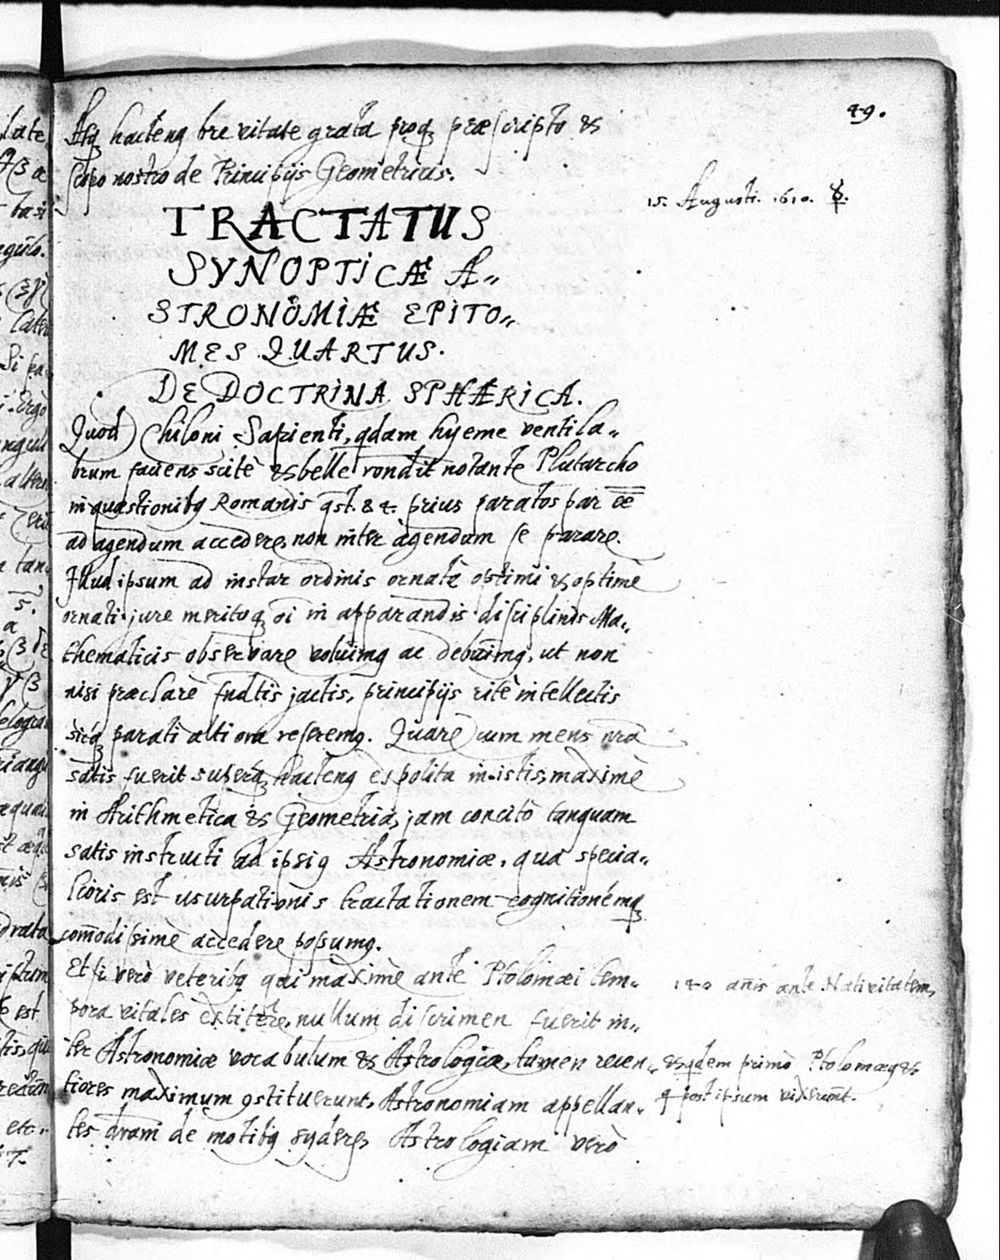 49.
Atq hactenq brevitate grata proq præscripto &
scopo nostro de Principijs Geometricis.
15. Augusti. 1610. ☿.
TRACTATUS
SYNOPTICÆ A„
STRONOMIÆ EPITO„
MES QUARTUS.
DE DOCTRINA SPHÆRICA.
Quod Chiloni Sapienti, qdam hyeme ventila„
brum faciens scitè & belle rondit notante Plutarcho
in quæstionibq Romanis qst. 84. prius paratos par ēē
ad agendum accedere, non inter agendum se parare.
Illud ipsum ad instar ordinis ornatè optimi & optimè
ornati jure meritoq oi in apparandis disciplinis Ma„
thematicis observare voluimq ac debuimq, ut non
nisi præclarè fndtis jactis, principijs ritè intellectis
sicq parati altiora reseremq. Quare cum mens nra
satis fuerit superq hactenq expolita in istis, maximè
in Arithmetica & Geometria, jam concitò tanquam
satis instructi ad ipsiq Astronomiæ, qua specia„
lioris est usurpationis tractationem cognitionémq
com̄odissimè accedere possumq.
Etsi verò veteribq qui maximè ante Ptolomæi tem„
pora vitales extitere, nullum discrimen fuerit in„
ter Astronomiæ vocabulum & Astrologiæ, tamen recen„
tiores maximum 9stituerunt, Astronomiam appellan„
tes dnam de motibq syderq, Astrologiam verò
140 añis ante Nativitatem,
& ijdem primò Ptolomæq &
q post ipsum vixerunt.